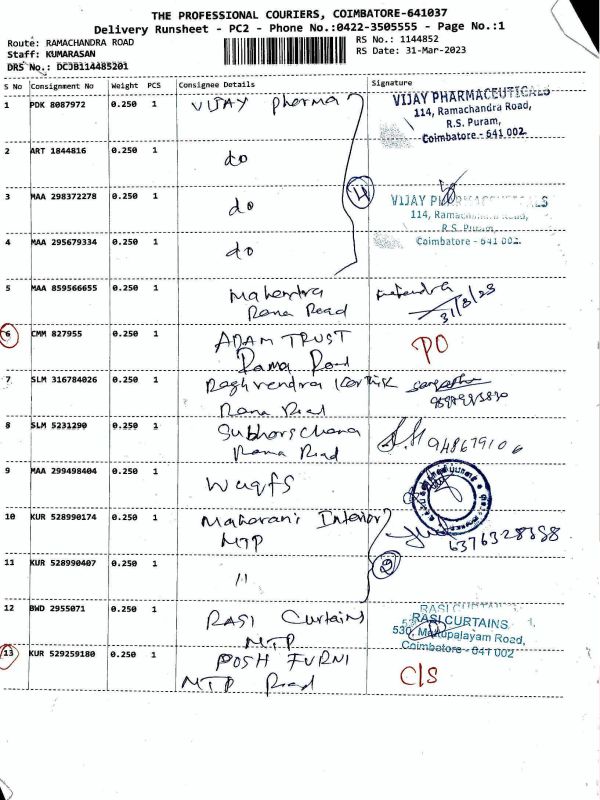 THE PROFESSIONAL COURIERS, COIMBATORE-641037
Delivery Runsheet - PC2 - Phone No.:0422-3505555 - Page No.:1
Route: RAMACHANDRA ROAD
RS No.: 1144852
Staff: KUMARASAN
RS Date: 31-Mar-2023
DRS No.: DCJB114485201
S No Consignment No Weight PCS Consignee Details Signature
1 PDK 8087972 0.250 1 VIJAY pharma
VIJAY PHARMACEUTICALS
114, Ramachandra Road,
R.S. Puram,
Coimbatore - 641 002.
2 ART 1844816 0.250 1 do
3 MAA 298372278 0.250 1 do
4
VIJAY PHARMACEUTICALS
114, Ramachandra Road,
R.S. Puram,
Coimbatore - 641 002.
4 MAA 295679334 0.250 1 do
5 MAA 859566655 0.250 1 Mahendra
Rama Road
31/3/23
6 CMM 827955 0.250 1 ADAM TRUST
Rama Road
PO
7 SLM 316784026 0.250 1 Raghvendra Karthik
Rama Road
8 SLM 5231290 0.250 1
Rama Road
9 MAA 299498404 0.250 1
10 KUR 528990174 0.250 1 Maharani Interior
MTP
6376328358
11 KUR 528990407 0.250 1 11
2
12 BWD 2955071 0.250 1 RASI Curtains
MTP
RASI CURTAINS
RASI CURTAINS
530, Mettupalayam Road,
Coimbatore - 641 002
13 KUR 529259180 0.250 1 POSH FURNI
MTP Road
C/S